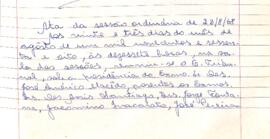 Ata da sessão ordinária de 23/8/68
Aos vinte e três dias do mês de
agôsto de um mil novecentos e sessen-
ta e oito, às dezessete horas, na sa-
la das sessões, reuniu-se o E. Tribu-
nal, sob a presidência do Exmo. Sr. Des.
José Américo Macedo, presentes os Exmos.
Srs. Drs.
Jacomino Inacarato, José Pereira